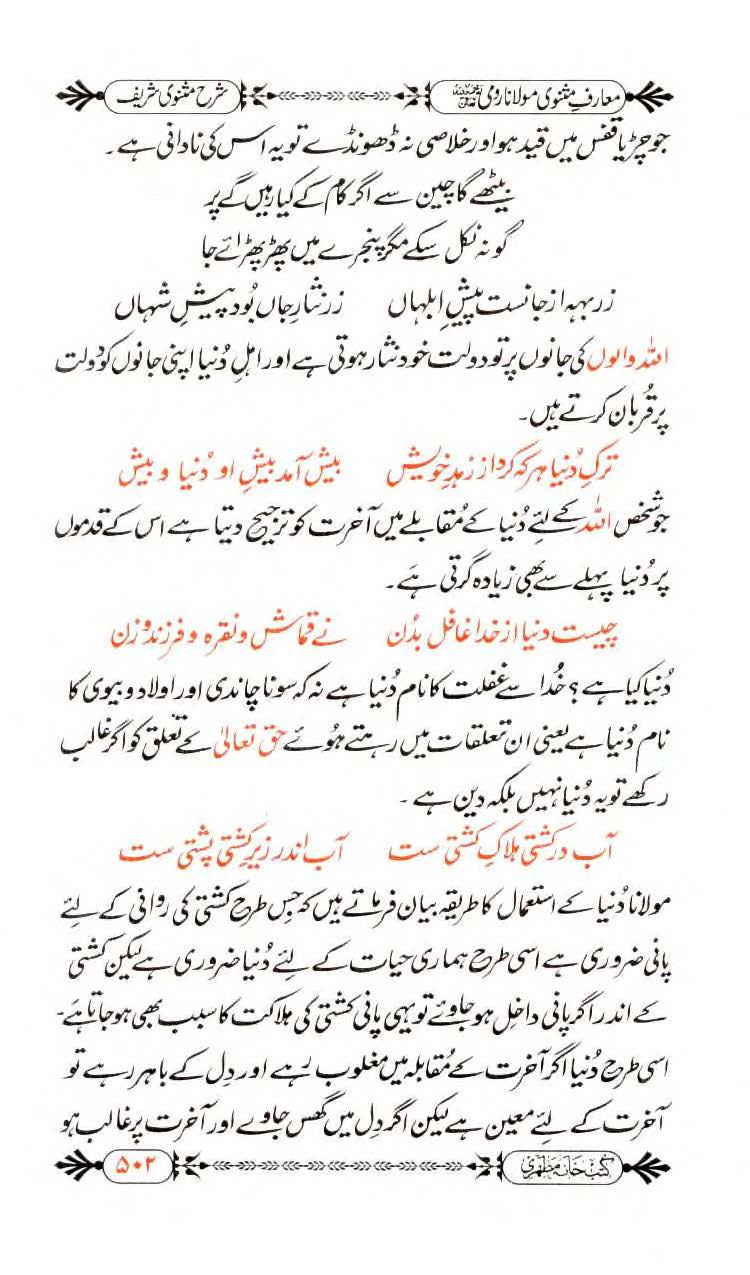 معارفِ مثنوی مولانا رومی شرح مثنوی شریف
جو چڑیا قفس میں قید ہو اور خلاصی نہ ڈھونڈے تو یہ اس کی نادانی ہے ۔
بیٹھے گا چین سے اگر کام کے کیا رہیں گے پر
گو نہ نکل سکے مگر پنجرے میں پھڑپھڑائے جا
زر بہہ از جانست پیشِ ابلہاں زر نثارِ جاں بُود پیشِ شہاں
اللہ والوں کی جانوں پر تو دولت خود نثار ہوتی ہے اور اہلِ دُنیا اپنی جانوں کو دولت
پر قُربان کرتے ہیں ۔
ترکِ دُنیا ہر کہ کرد از زہدِ خویش بیش آمد بیشِ او دُنیا و بیش
جو شخص اللہ کے لئے دُنیا کے مُقابلے میں آخرت کو ترجیح دیتا ہے اس کے قدموں
پر دُنیا پہلے سے بھی زیادہ گرتی ہے ۔
چیست دنیا از خدا غافل بدُن نے قماش و نقرہ و فرزند و زن
دُنیا کیا ہے ؟ خُدا سے غفلت کا نام دُنیا ہے نہ کہ سونا چاندی اور اولاد و بیوی کا
نام دُنیا ہے یعنی ان تعلقات میں رہتے ہُوئے حق تعالیٰ کے تعلق کو اگر غالب
رکھے تو یہ دُنیا نہیں بلکہ دین ہے ۔
آب در کشتی ہلاکِ کشتی ست آب اندر زیرِ کشتی پشتی ست
مولانا دُنیا کے استعمال کا طریقہ بیان فرماتے ہیں کہ جس طرح کشتی کی روانی کے لئے
پانی ضروری ہے اسی طرح ہماری حیات کے لئے دُنیا ضروری ہے لیکن کشتی
کے اندر اگر پانی داخل ہو جاوئے تو یہی پانی کشتی کی ہلاکت کا سبب بھی ہو جاتا ہے ۔
اسی طرح دُنیا اگر آخرت کے مُقابلہ میں مغلوب رہے اور دِل کے باہر رہے تو
آخرت کے لئے معین ہے لیکن اگر دِل میں گھس جاوے اور آخرت پر غالب ہو
کتب خانہ مظہری ۵۰۲